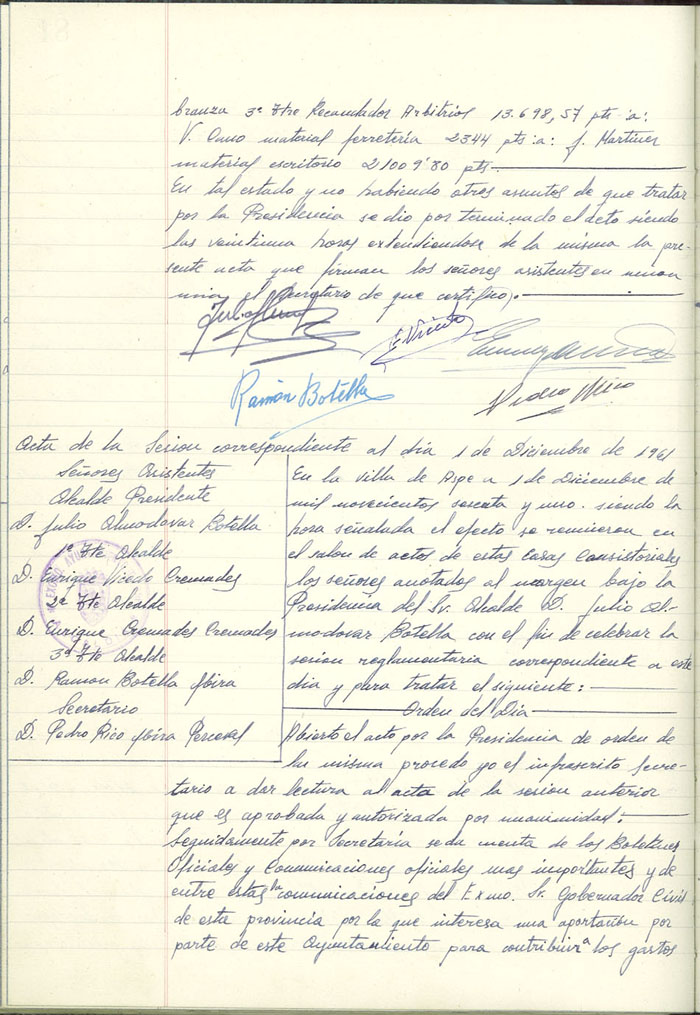 branza 3ª Ttre Recaudador Arbitrios 13.698,57 pts a:
V. Cano material ferretería 2344 pts a: J. Martinez
material escritorio 21009'80 pts
En tal estado y no habiendo otros asuntos de que tratar
por la Presidencia se dio por terminado el acto siendo
las veintiuna horas extendiendose de la misma la pre-
sente acta que firman los señores asistentes en
el Secretario de que certifico.
E. Vicedo
Ramón Botella
Pedro Rico
Acta de la Sesion correspondiente al día 1 de Diciembre de 1961
Señores Asistentes
Alcalde Presidente
D. Julio Almodovar Botella
1º Tte Alcalde
D. Enrique Vicedo Cremades
2º Tte Alcalde
D. Enrique Cremades Cremades
3º Tte Alcalde
D. Ramon Botella Abira
Secretario
D. Pedro Rico Abira Perceval
En la villa de Aspe a 1 de Diciembre de
mil novecientos sesenta y uno. siendo la
hora señalada el efecto se reunieron en
el salon de actos de estas casas consistoriales
los señores anotados al margen bajo la
Presidencia del Sr. Alcalde D. Julio Al-
modovar Botella con el fin de celebrar la
sesion reglamentaria correspondiente a este
dia y para tratar el siguiente:
Orden del Dia
Abierto el acto por la Presidencia de orden de
la misma procedo yo el infrascrito Secre-
tario a dar lectura al acta de la sesion anterior
que es aprobada y autorizada por unanimidad:
Seguidamente por Secretaría se da cuenta de los Boletines
Oficiales y Comunicaciones oficiales mas importantes y de
entre estas la comunicaciones del Exmo. Sr. Gobernador Civil
de esta provincia por la que interesa una aportación por
parte de este Ayuntamiento para contribuir a los gastos